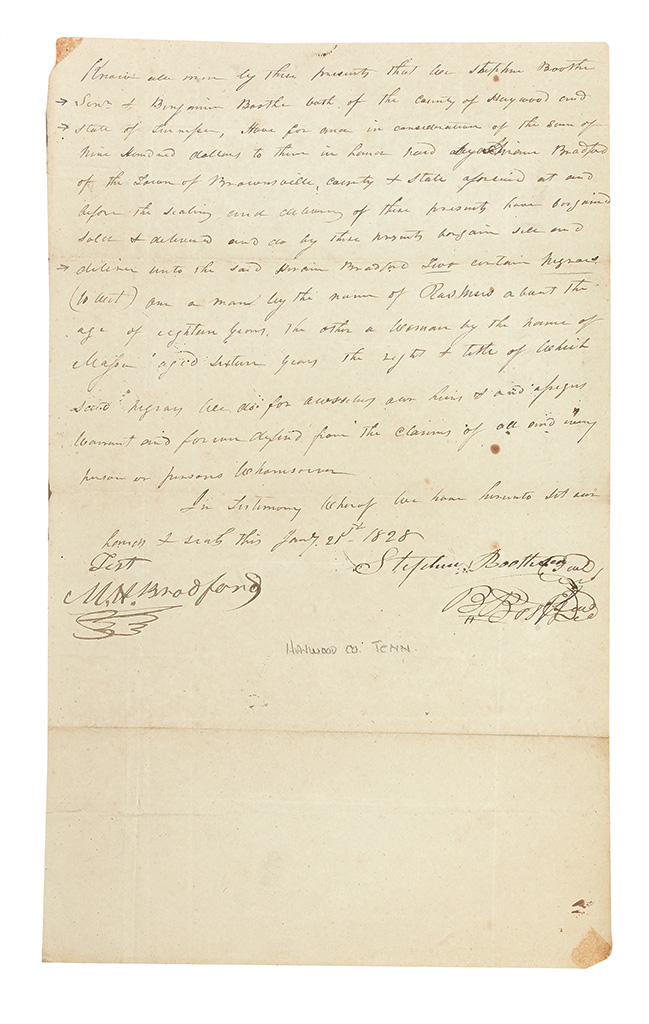 Know all men by these presents that we Stephen Boothe
Senr & Benjamin Boothe both of the County of Haywood and
State of Tennessee, Have for and in consideration of the Sum of
Nine Hundred dollars to them in hand paid by Hiram Bradford
of the Town of Brownsville, County & State aforesaid at and
before the sealing and delivery of these presents have bargained
sold & delivered and do by these presents bargain sell and
deliver unto the said Hiram Bradford Two certain Negroes
(to wit) one a man by the name of about the
age of eighteen years, the other a Woman by the name of
aged sixteen years the right & title of which
said negroes we do for ourselves our heirs & and assigns
warrant and forever defend from the claims of all and every
person or persons whomsoever
In Testimony Whereof We have hereunto set our
hands & seals this Jany. 21st 1828
Test Stephen Boothe Seal
M. H. Bradford B Boothe Seal
HAYWOOD CO. TENN.